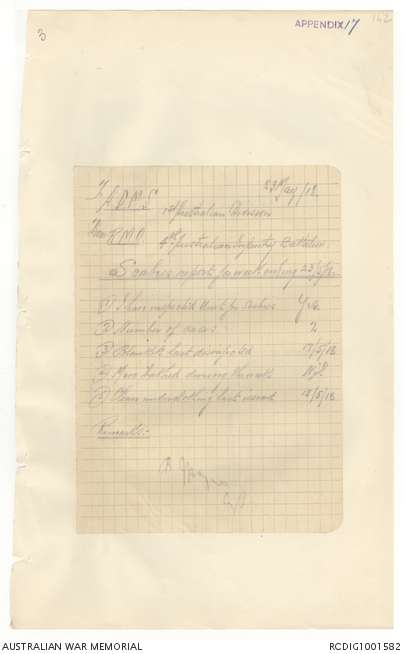 3
APPENDIX 17
142
To A.D.M.S
23 May/18
1st Australian Division
From R.M.O.
Australian Infantry Battalion
Scabies report for week ending 23/5/18
(1) I have inspected Unit for Scabies Yes
(2) Number of cases 2
(3) Blankets last disinfected 17/5/18
(4) Men bathed during the week
(5) Clean underclothing last issued 18/5/18
Remarks:-
Capt
AUSTRALIAN WAR MEMORIAL
RCDIG1001582